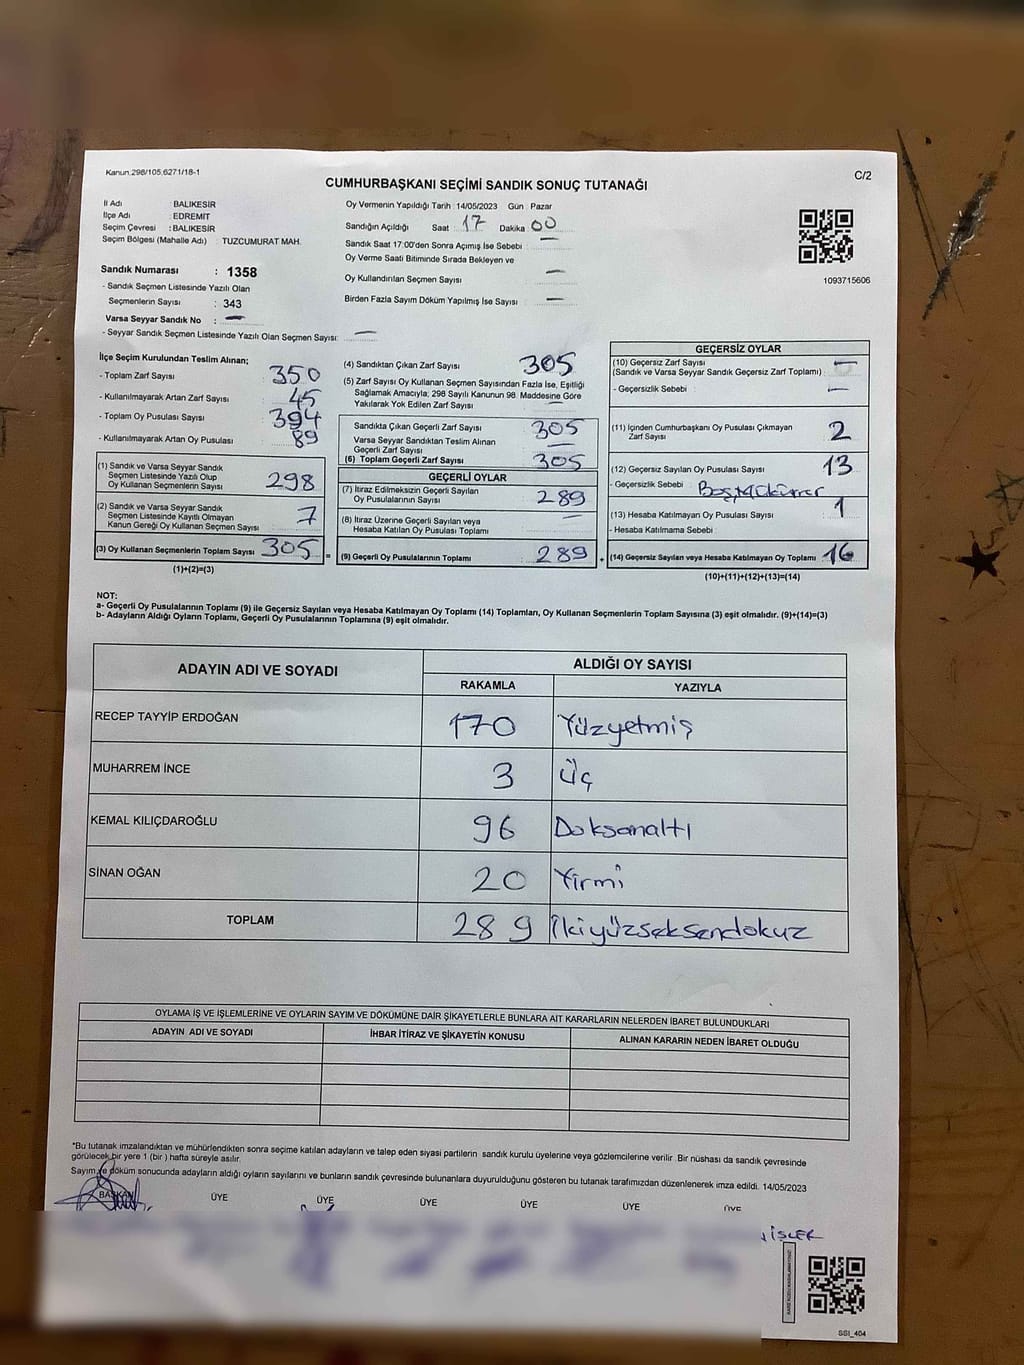 Kanun.298/105,6271/18-1
C/2
CUMHURBAŞKANI SEÇİMİ SANDIK SONUÇ TUTANAĞI
İl Adı : BALIKESİR
İlçe Adı : EDREMİT
Seçim Çevresi : BALIKESİR
Seçim Bölgesi (Mahalle Adı) : TUZCUMURAT MAH.
Sandık Numarası : 1358
- Sandık Seçmen Listesinde Yazılı Olan
Seçmenlerin Sayısı : 343
Varsa Seyyar Sandık No : —
- Seyyar Sandık Seçmen Listesinde Yazılı Olan Seçmen Sayısı: —
Oy Vermenin Yapıldığı Tarih : 14/05/2023 Gün : Pazar
Sandığın Açıldığı Saat 17 Dakika 00
Sandık Saat 17:00'den Sonra Açımış İse Sebebi : —
Oy Verme Saati Bitiminde Sırada Bekleyen ve
Oy Kullandırılan Seçmen Sayısı : —
Birden Fazla Sayım Döküm Yapılmış İse Sayısı : —
1093715606
İlçe Seçim Kurulundan Teslim Alınan;
- Toplam Zarf Sayısı : 350
- Kullanılmayarak Artan Zarf Sayısı : 45
- Toplam Oy Pusulası Sayısı : 394
- Kullanılmayarak Artan Oy Pusulası : 89
(1) Sandık ve Varsa Seyyar Sandık
Seçmen Listesinde Yazılı Olup
Oy Kullanan Seçmenlerin Sayısı : 298
(2) Sandık ve Varsa Seyyar Sandık
Seçmen Listesinde Kayıtlı Olmayan
Kanun Gereği Oy Kullanan Seçmen Sayısı : 7
(3) Oy Kullanan Seçmenlerin Toplam Sayısı : 305
(1)+(2)=(3)
(4) Sandıktan Çıkan Zarf Sayısı : 305
(5) Zarf Sayısı Oy Kullanan Seçmen Sayısından Fazla İse, Eşitliği
Sağlamak Amacıyla; 298 Sayılı Kanunun 98. Maddesine Göre
Yakılarak Yok Edilen Zarf Sayısı : —
Sandıkta Çıkan Geçerli Zarf Sayısı : 305
Varsa Seyyar Sandıktan Teslim Alınan
Geçerli Zarf Sayısı : —
(6) Toplam Geçerli Zarf Sayısı : 305
GEÇERLİ OYLAR
(7) İtiraz Edilmeksizin Geçerli Sayılan
Oy Pusulalarının Sayısı : 289
(8) İtiraz Üzerine Geçerli Sayılan veya
Hesaba Katılan Oy Pusulaları Toplamı : —
(9) Geçerli Oy Pusulalarının Toplamı : 289
GEÇERSİZ OYLAR
(10) Geçersiz Zarf Sayısı
(Sandık ve Varsa Seyyar Sandık Geçersiz Zarf Toplamı) :
- Geçersizlik Sebebi : —
(11) İçinden Cumhurbaşkanı Oy Pusulası Çıkmayan
Zarf Sayısı : 2
(12) Geçersiz Sayılan Oy Pusulası Sayısı : 13
- Geçersizlik Sebebi :
(13) Hesaba Katılmayan Oy Pusulası Sayısı : 1
- Hesaba Katılmama Sebebi :
(14) Geçersiz Sayılan veya Hesaba Katılmayan Oy Toplamı : 16
(10)+(11)+(12)+(13)=(14)
NOT:
a- Geçerli Oy Pusulalarının Toplamı (9) ile Geçersiz Sayılan veya Hesaba Katılmayan Oy Toplamı (14) Toplamları, Oy Kullanan Seçmenlerin Toplam Sayısına (3) eşit olmalıdır. (9)+(14)=(3)
b- Adayların Aldığı Oyların Toplamı, Geçerli Oy Pusulalarının Toplamına (9) eşit olmalıdır.
ADAYIN ADI VE SOYADI ALDIĞI OY SAYISI
RAKAMLA YAZIYLA
RECEP TAYYİP ERDOĞAN 170 Yüzyetmiş
MUHARREM İNCE 3 Üç
KEMAL KILIÇDAROĞLU 96 Doksanaltı
SİNAN OĞAN 20 Yirmi
TOPLAM 289 İkiyüzseksendokuz
OYLAMA İŞ VE İŞLEMLERİNE VE OYLARIN SAYIM VE DÖKÜMÜNE DAİR ŞİKAYETLERLE BUNLARA AİT KARARLARIN NELERDEN İBARET BULUNDUKLARI
ADAYIN ADI VE SOYADI İHBAR İTİRAZ VE ŞİKAYETİN KONUSU ALINAN KARARIN NEDEN İBARET OLDUĞU
*Bu tutanak imzalandıktan ve mühürlendikten sonra seçime katılan adayların ve talep eden siyasi partilerin sandık kurulu üyelerine veya gözlemcilerine verilir. Bir nüshası da sandık çevresinde
görülecek bir yere 1 (bir) hafta süreyle asılır.
Sayım ve döküm sonucunda adayların aldığı oyların sayılarını ve bunların sandık çevresinde bulunanlara duyurulduğunu gösteren bu tutanak tarafımızdan düzenlenerek imza edildi. 14/05/2023
BAŞKAN ÜYE ÜYE ÜYE ÜYE ÜYE ÜYE
İŞLER
SSI_404